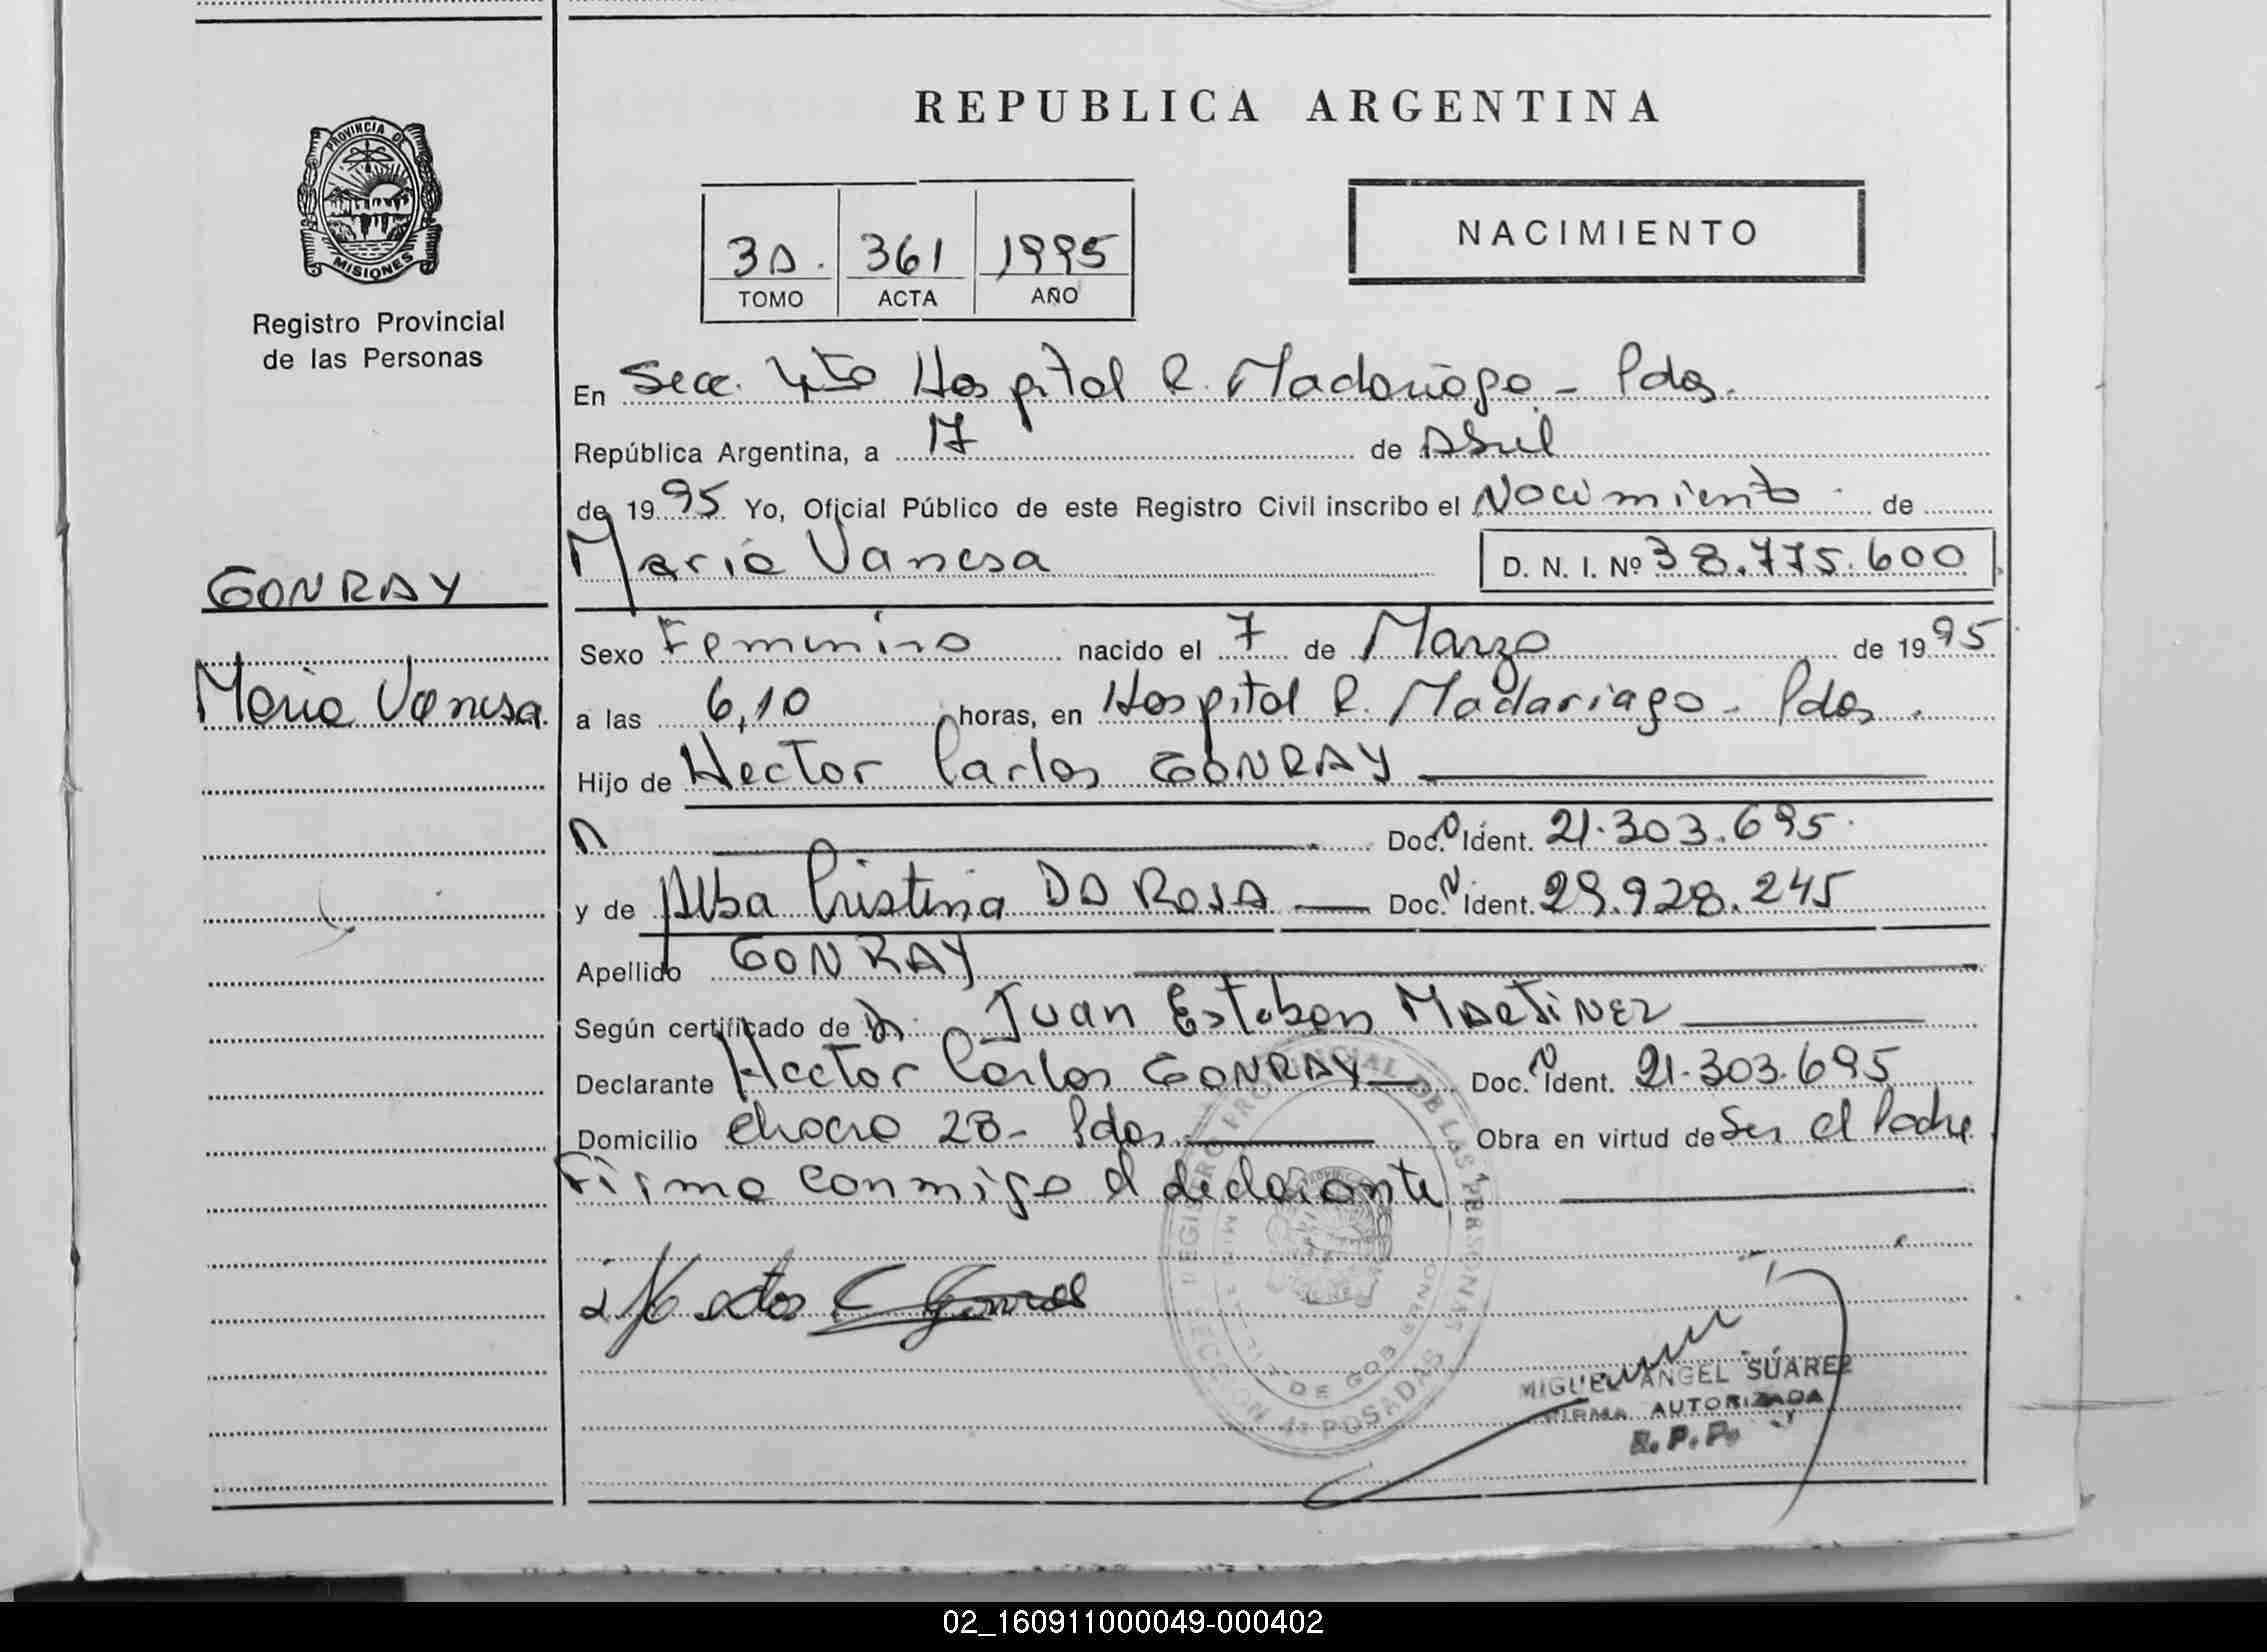 REPUBLICA ARGENTINA
PROVINCIA DE
MISIONES
Registro Provincial
de las Personas
3A. 361 1995
TOMO ACTA AÑO
NACIMIENTO
En Secc. 4ta Hospital R. Madariaga - Pdas.
República Argentina, a 17 de Abril
de 1995 Yo, Oficial Público de este Registro Civil inscribo el Nacimiento de
GONRAY
Maria Vanesa
Maria Vanesa D. N. I. Nº 38.775.600
Sexo Femenino nacido el 7 de Marzo de 1995
a las 6,10 horas, en Hospital R. Madariaga - Pdas.
Hijo de Hector Carlos GONRAY
Doc. N Ident. 21.303.695
y de Alba Cristina DA ROSA Doc. N Ident. 29.928.245
Apellido GONRAY
Según certificado de Dr. Juan Esteban MARTINEZ
Declarante Hector Carlos GONRAY Doc. N Ident. 21.303.695
Domicilio chacra 28- Pdas. Obra en virtud de Ser el Padre
Firma conmigo el declarante
REGISTRO PROVINCIAL DE LAS PERSONAS
DE GOBIERNO
SECCION 4ª POSADAS
MIGUEL ANGEL SUAREZ
FIRMA AUTORIZADA
R. P. P.
02_160911000049-000402